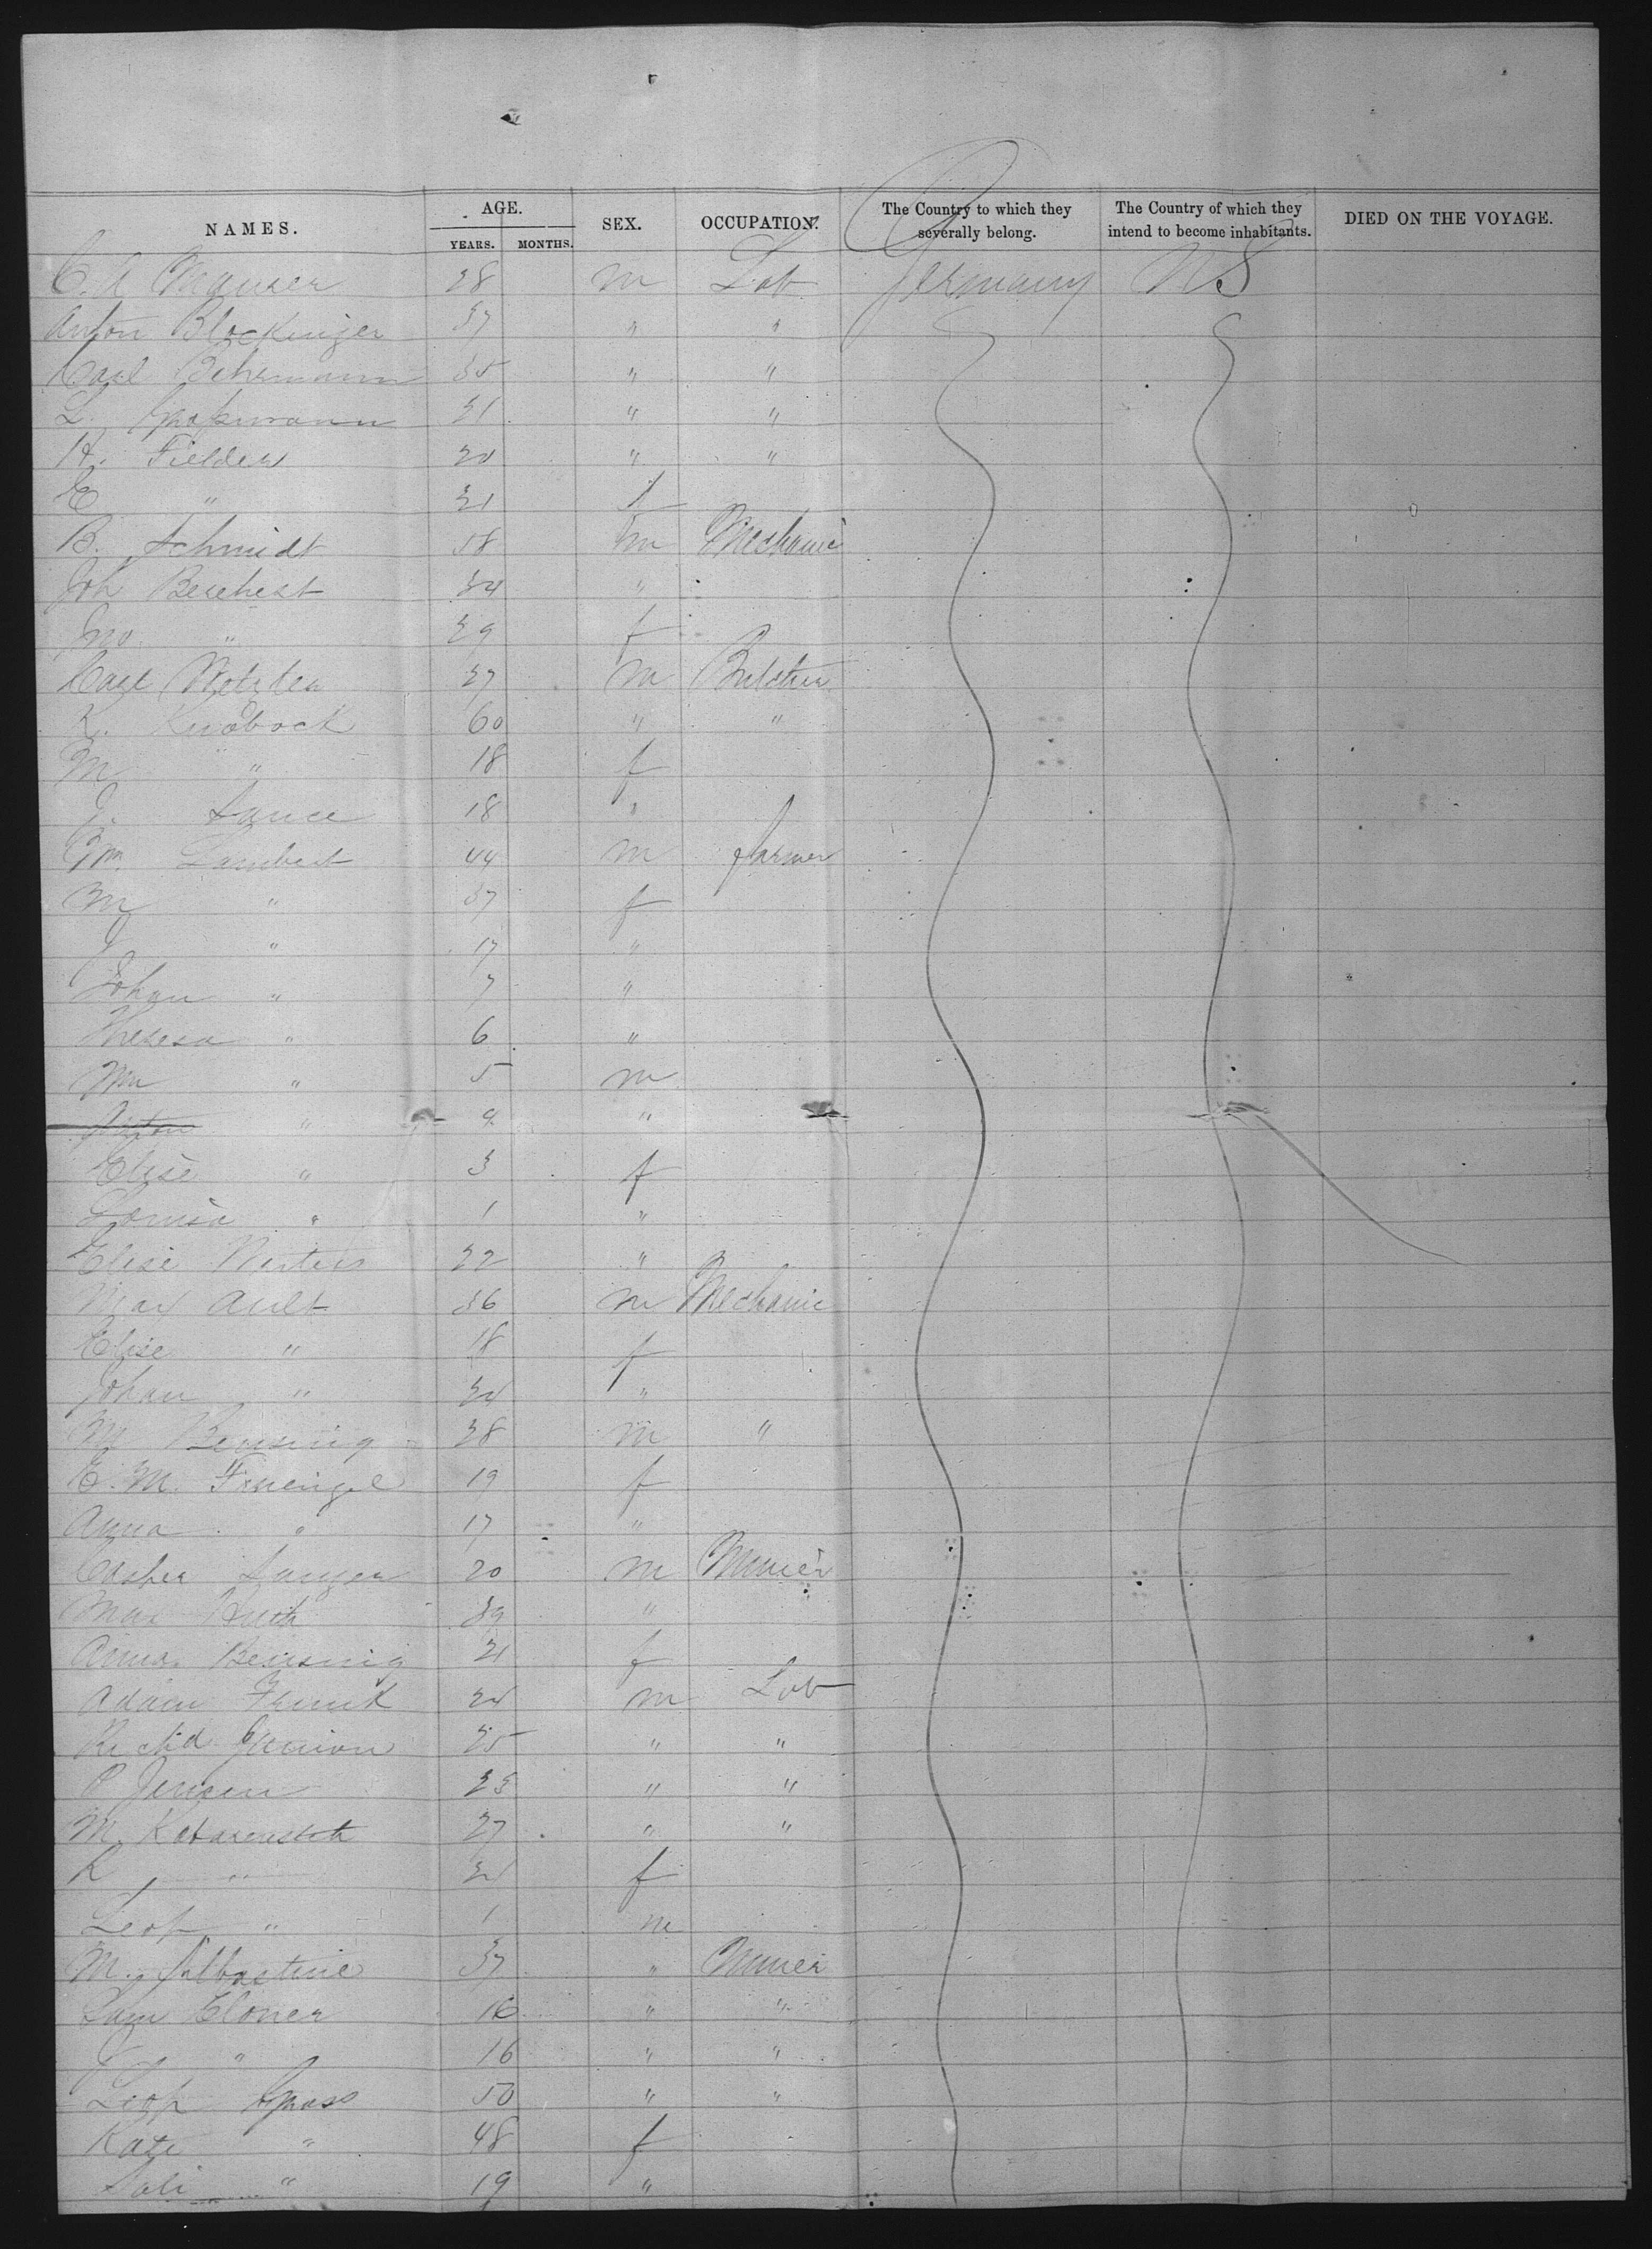 NAMES. AGE. YEARS. MONTHS. SEX. OCCUPATION. The Country to which they severally belong. The Country of which they intend to become inhabitants. DIED ON THE VOYAGE.
C. A Mauser 28 m Lab Germany US
Anton Blockinger 37 " "
Carl Behrmann 35 " "
L. Großmann 21 " "
H. Fielder 20 " "
E " 21 f
B. Schmidt 58 m Mechanic
Joh 34 "
" 29 f
Carl 27 m Butcher
K. Knobock 60 " "
M " 18 f
J. 18 "
Wm. Lambert 44 m farmer
M " 37 f
J " 17 "
Johan " 7 "
Theresa " 6 "
Wm " 5 m
Anton " 9 "
Elise " 3 f
Louisa " 1 "
Elise 22 "
Max Ault 36 m Mechanic
Elise " 18 f
Johan " "
M Bensing 28 m "
E. M. 19 f
Anna " 17 "
Casper 20 m Miner
Max 39 "
Anna Bensing 21 f
Adam Frank 24 m Lab
Richd 25 " "
P Jensen 23 " "
M. 27 " "
" f
Leop " 1 m
M. 37 " Miner
Sam Cloner 16 " "
J " 16 " "
Leop Gross 50 " "
Kate " 48 f
Sali " 19 "